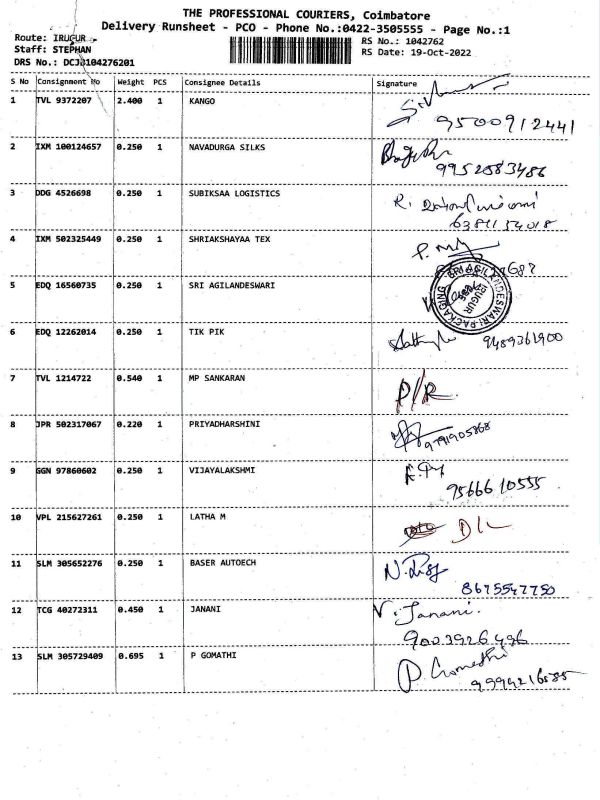 THE PROFESSIONAL COURIERS, Coimbatore
Delivery Runsheet - PCO - Phone No.:0422-3505555 - Page No.:1
Route: IRUGUR
Staff: STEPHAN
DRS No.: DCJ0104276201
RS No.: 1042762
RS Date: 19-Oct-2022
S No Consignment No Weight PCS Consignee Details Signature
1 TVL 9372207 2.400 1 KANGO
9500912441
2 IXM 100124657 0.250 1 NAVADURGA SILKS
9952583486
3 DDG 4526698 0.250 1 SUBIKSAA LOGISTICS R.
6381134018
4 IXM 502325449 0.250 1 SHRIAKSHAYAA TEX
5 EDQ 16560735 0.250 1 SRI AGILANDESWARI
SRI AGILANDESWARI PACKAGING
IRUGUR
6 EDQ 12262014 0.250 1 TIK PIK 9489361900
7 TVL 1214722 0.540 1 MP SANKARAN P/R
8 JPR 502317067 0.220 1 PRIYADHARSHINI 9791905868
9 GGN 97860602 0.250 1 VIJAYALAKSHMI
9566610555
10 VPL 215627261 0.250 1 LATHA M D/L
11 SLM 305652276 0.250 1 BASER AUTOECH
8675547750
12 TCG 40272311 0.450 1 JANANI V. Janani.
9003926496
13 SLM 305729409 0.695 1 P GOMATHI P. Gomathi